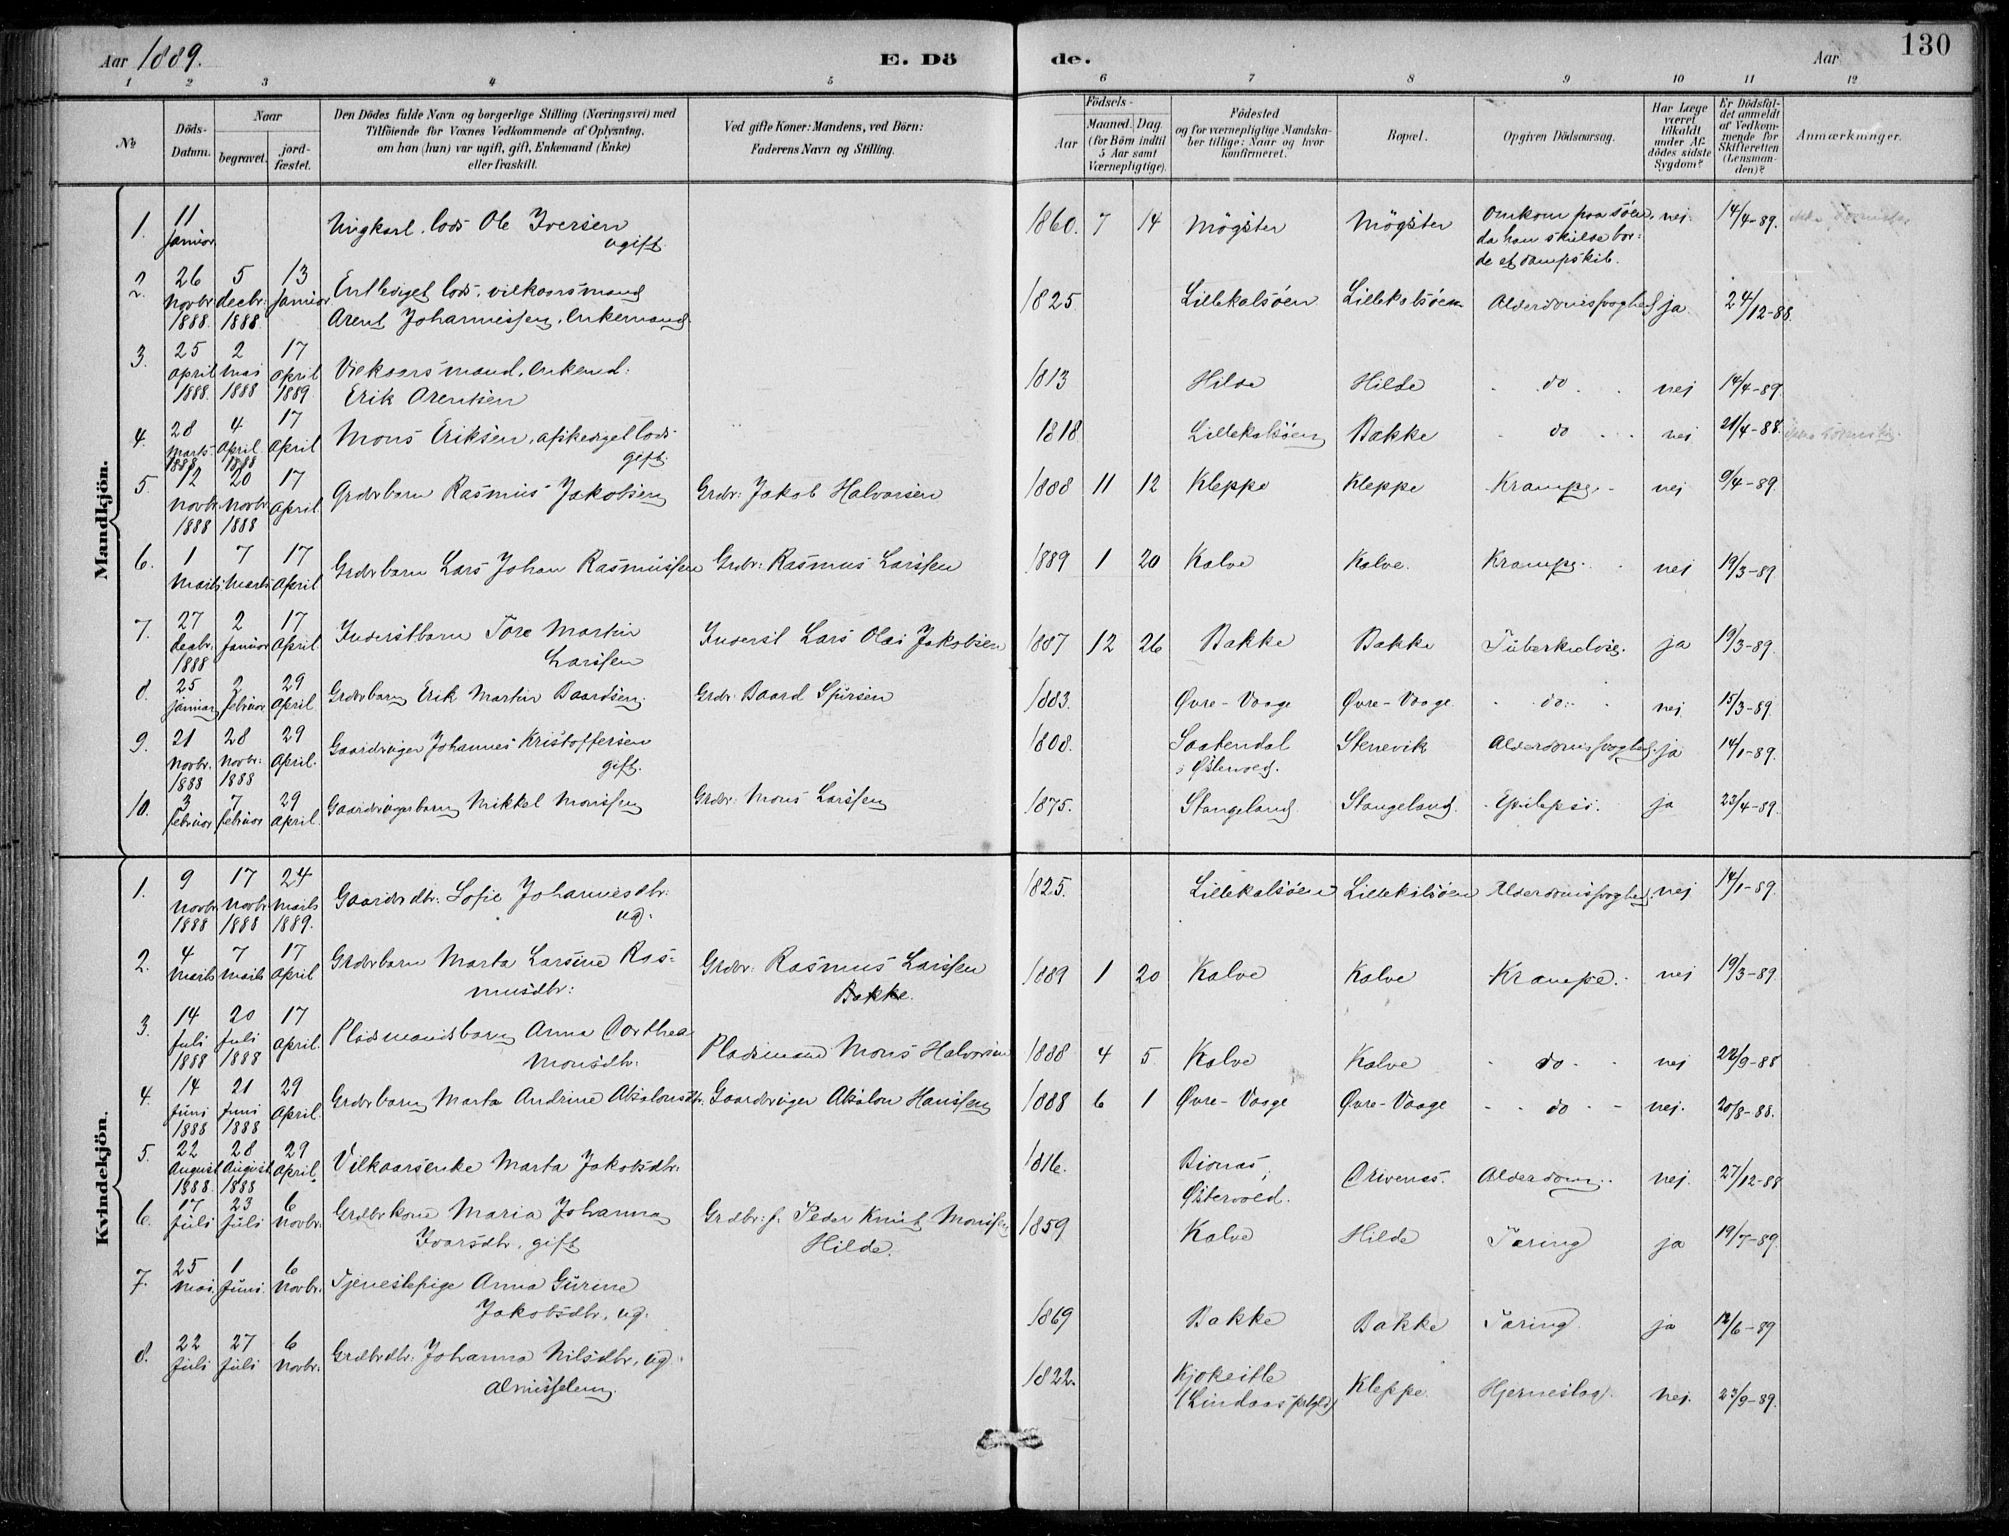 Aar 1889.
E. Döde.
Aar
130
1 2 3 4 5 6 7 8 9 10 11 12
No
Döds-Datum.
Naar
begravet.
jord-fæstet.
Den Dödes fulde Navn og borgerlige Stilling (Næringsvei) med
Tilföiende for Voxnes Vedkommende af Oplysning,
om han (hun) var ugift, gift, Enkemand (Enke)
eller fraskilt.
Ved gifte Koner: Mandens, ved Börn:
Faderens Navn og Stilling.
Födsels-
Aar
Maaned. Dag
(for Börn indtil
5 Aar samt
Værnepligtige).
Födested
og for værnepligtige Mandska-
ber tillige: Naar og hvor
konfirmeret.
Bopæl.
Opgiven Dödsaarsag.
Har Læge
været
tilkaldt
under Af-
dödes sidste
Sygdom?
Er Dödsfal-
det anmeldt
af Vedkom-
mende for
Skifteretten
(Lensman-
den)?
Anmærkninger.
Mandkjön.
1. 11 Januar Ungkarl. Lods Ole Iversen ugift. 1860. 7 14 Mögster Mögster Omkom paa söen, da han skulde bor-de et dampskib. nej. 14/4-89.
2. 26 Novbr 1888. 5 decbr: 1888 13 Januar Entlediget lods, vilkaarsmand Arent Johannessen, Enkemand. 1825. Lillekalsöen Lillekalsöen Alderdomssvaghed ja 24/12-88.
3. 25 April 1888. 2 Mai 1888 17 April 1889 Vilkaarsmand, enkemd: Erik Arentsen 1813 Hilde Hilde do nej 14/4-89.
4. 28 Marts 1888 4 April 1888 17 April Mons Eriksen, afskediget lods gift. 1818. Lillekalsöen Bakke do nej 21/4-88.
5. 12 Novbr 1888 20 Novbr 1888 17 April Grdbrbarn Rasmus Jakobsen Grdbr: Jakob Halvorsen 1888 11 12 Kleppe Kleppe Krampe nej 9/4-89
6. 1 Marts 7 Marts 17 April Grdbrbarn Lars Johan Rasmussen Grdbr: Rasmus Larssen 1889 1 20 Kalve Kalve. Krampe. nej 19/3-89
7. 27 decbr. 1888 2 Januar 17 April Inderstbarn Tore Martin Larssen Inderst Lars Olai Jakobsen 1887 12 26 Bakke Bakke Tuberkulose. ja 19/3-89.
8. 25 Januar 2 Februar 29 April Grdbrbarn Erik Martin Baardsen. Grdbr: Baard Sjursen 1883. Øvre-Vaage Øvre-Vaage do. nej. 15/3-89.
9. 21 Novbr. 1888 28 Novbr: 1888 29 April. Gaardbruger Johannes Kristoffersen gift. 1808. i Østervold. Stenevik Alderdomssvaghed. ja 14/1-89.
10. 3 Februar 7 Februar 29 April. Gaardbrugerbarn Mikkel Monssen Grdbr: Mons Larssen 1875. Stangeland. Stangeland. Epilepsi. ja 23/4-89.
Kvindekjön.
1. 9 Novbr 1888 17 Novbr 1888 24 Marts 1889. Gaardbrdtr: Sofie Johannesdtr: ug. 1825. Lillekalsöen Lillekalsöen Alderdomssvaghed. nej 14/1-89.
2. 4 Marts 7 Marts 17 April Grdbrbarn Marta Larsine Ras-musdtr: Grdbr: Rasmus Larssen Bakke. 1889 1 20 Kalve Kalve Krampe. nej 19/3-89.
3. 14 Juli 1888 20 Juli 1888 17 April. Pladsmandsbarn Anna Dorthea Monsdtr: Pladsmand Mons Halvorsen 1888 4 5. Kalve Kalve do. nej 22/9-88
4. 14 Juni 1888 21 Juni 1888 29 April Grdbrbarn Marta Andrine Absalonsdtr: Gaardbruger Absalon Hanssen 1888 6 1 Øvre-Vaage Øvre-Vaage do nej. 20/8-88.
5. 22 August 1888. 28 August 1888 29 April Vilkaarsenke Marta Jakobsdtr: 1816. Østervold. Drivenas. Alderdom. nej. 27/12-88
6. 17 Juli 23 Juli 6 Novbr: Grdbrkone Maria Johanna Ivarsdtr, gift Grdbr: f. Peder Knut Monssen Hilde. 1859 Kalve Hilde Tæring ja 19/7-89.
7. 25 Mai. 1 Juni. 6 Novbr. Tjenestepige Anna Gurine Jakobsdtr, ug. 1869 Bakke Bakke Tæring. ja 12/6-89
8. 22 Juli 27 Juli 6 Novbr. Grdbrdtr: Johanna Nilsdtr, ug. almisselem. 1822. (Lindaas prgld) Kleppe. Hjerneslag. nej. 23/9-89.